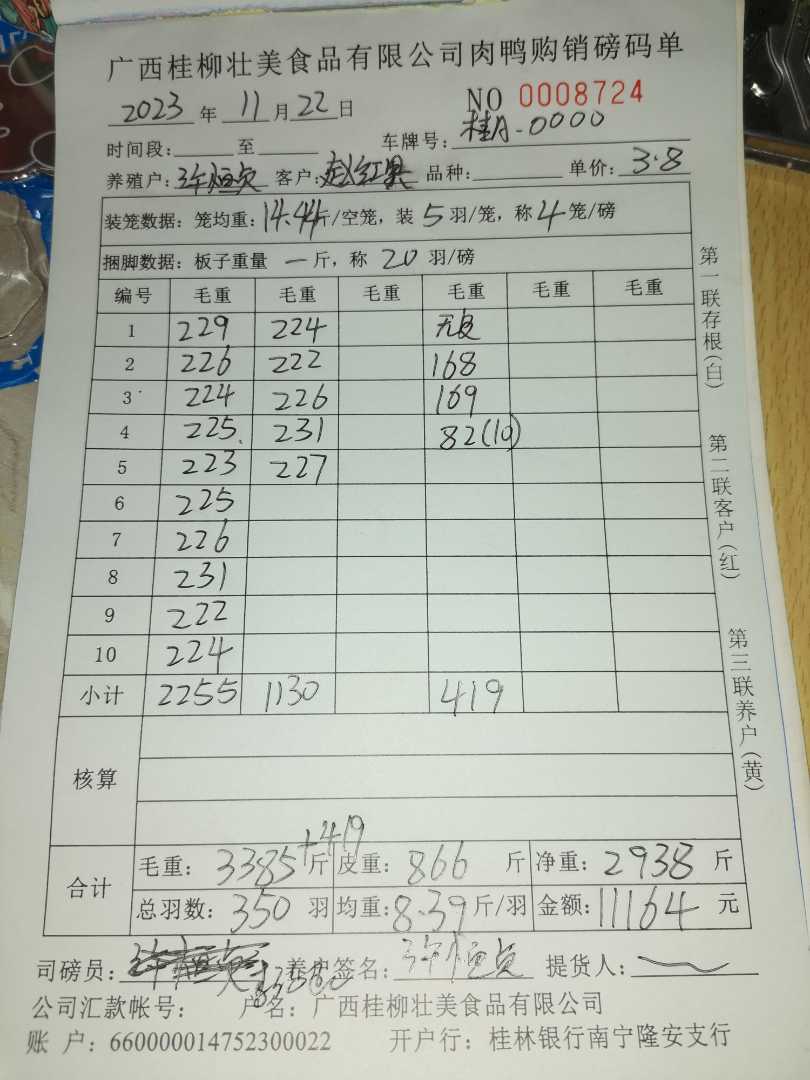 广西桂柳壮美食品有限公司肉鸭购销磅码单
2023 年 11 月 22 日 NO 0008724
时间段: 至 车牌号: 桂A-0000
养殖户: 许恒贞 客户: 赵红果 品种: 单价: 3.8
装笼数据: 笼均重: 14.44斤/空笼, 装 5 羽/笼, 称 4 笼/磅
捆脚数据: 板子重量 一 斤, 称 20 羽/磅
编号 毛重 毛重 毛重 毛重 毛重 毛重
1 229 224
2 226 222 168
3 224 226 169
4 225 231 82(10)
5 223 227
6 225
7 226
8 231
9 222
10 224
小计 2255 1130 419
核算
+419
合计 毛重: 3385 斤 皮重: 866 斤 净重: 2938 斤
总羽数: 350 羽 均重: 8.39 斤/羽 金额: 11164 元
司磅员: 许恒贞 养户签名: 许恒贞 提货人:
公司汇款帐号: 户名: 广西桂柳壮美食品有限公司
账 户: 660000014752300022 开户行: 桂林银行南宁隆安支行
第一联存根(白)
第二联客户(红)
第三联养户(黄)